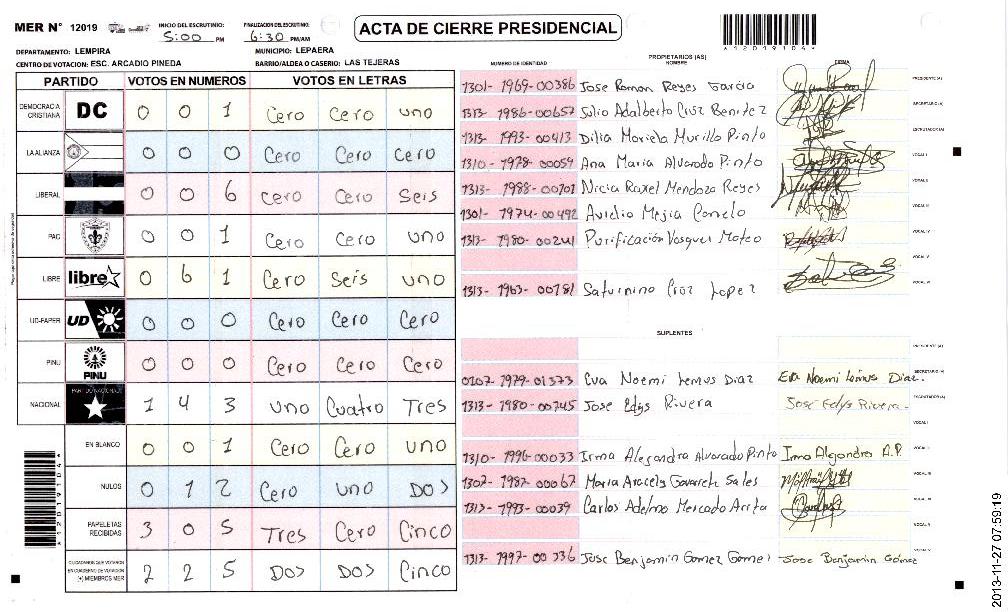 MER N° 12019
INICIO DEL ESCRUTINIO: 5:00 PM
FINALIZACION DEL ESCRUTINIO: 6:30 PM/AM
ACTA DE CIERRE PRESIDENCIAL
*12019104*
DEPARTAMENTO: LEMPIRA
MUNICIPIO: LEPAERA
CENTRO DE VOTACION: ESC. ARCADIO PINEDA
BARRIO/ALDEA O CASERIO: LAS TEJERAS
PARTIDO VOTOS EN NUMEROS VOTOS EN LETRAS
DEMOCRACIA CRISTIANA DC 0 0 1 Cero Cero uno
LA ALIANZA 0 0 0 Cero Cero Cero
LIBERAL 0 0 6 Cero Cero Seis
PAC 0 0 1 Cero Cero uno
LIBRE libre 0 6 1 Cero Seis uno
UD-FAPER UD 0 0 0 Cero Cero Cero
PINU PINU 0 0 0 Cero Cero Cero
NACIONAL PARTIDO NACIONAL 1 4 3 uno Cuatro Tres
EN BLANCO 0 0 1 Cero Cero uno
NULOS 0 1 2 Cero uno DOS
PAPELETAS RECIBIDAS 3 0 5 Tres Cero Cinco
CIUDADANOS QUE VOTARON EN CUADERNO DE VOTACION (+) MIEMBROS MER 2 2 5 DOS DOS Cinco
*12019104*
PROPIETARIOS (AS)
NUMERO DE IDENTIDAD NOMBRE FIRMA
1301-1969-00386 Jose Roman Reyes Garcia PRESIDENTE (A)
1313-1986-00657 Julio Adalberto Cruz Benitez SECRETARIO (A)
1313-1993-00413 Dilia Mariela Murillo Pinto ESCRUTADOR (A)
1310-1978-00059 Ana Maria Alvarado Pinto VOCAL I
1313-1988-00701 Nicia Raxel Mendoza Reyes VOCAL II
1301-1974-00492 Avrelio Mejia VOCAL III
1313-1980-00241 Purificación Vasquez Mateo VOCAL IV
VOCAL V
1313-1963-00781 Saturnino Cruz Lopez VOCAL VI
SUPLENTES
PRESIDENTE (A)
0107-1979-01373 Eva Noemi Lemus Diaz Eva Noemi Lemus Diaz. SECRETARIO (A)
1313-1980-00745 Jose Edys Rivera Jose Edys Rivera ESCRUTADOR (A)
VOCAL I
1310-1996-00033 Irma Alejandra Alvarado Pinto Irma Alejandra A.P. VOCAL II
1302-1987-00067 Maria Aracely Sales VOCAL III
1313-1993-00039 Carlos Adelmo Mercado VOCAL IV
VOCAL V
1313-1997-00336 Jose Benjamin Gomez Gomez Jose Benjamin Gómez VOCAL VI
2013-11-27 07:59:19